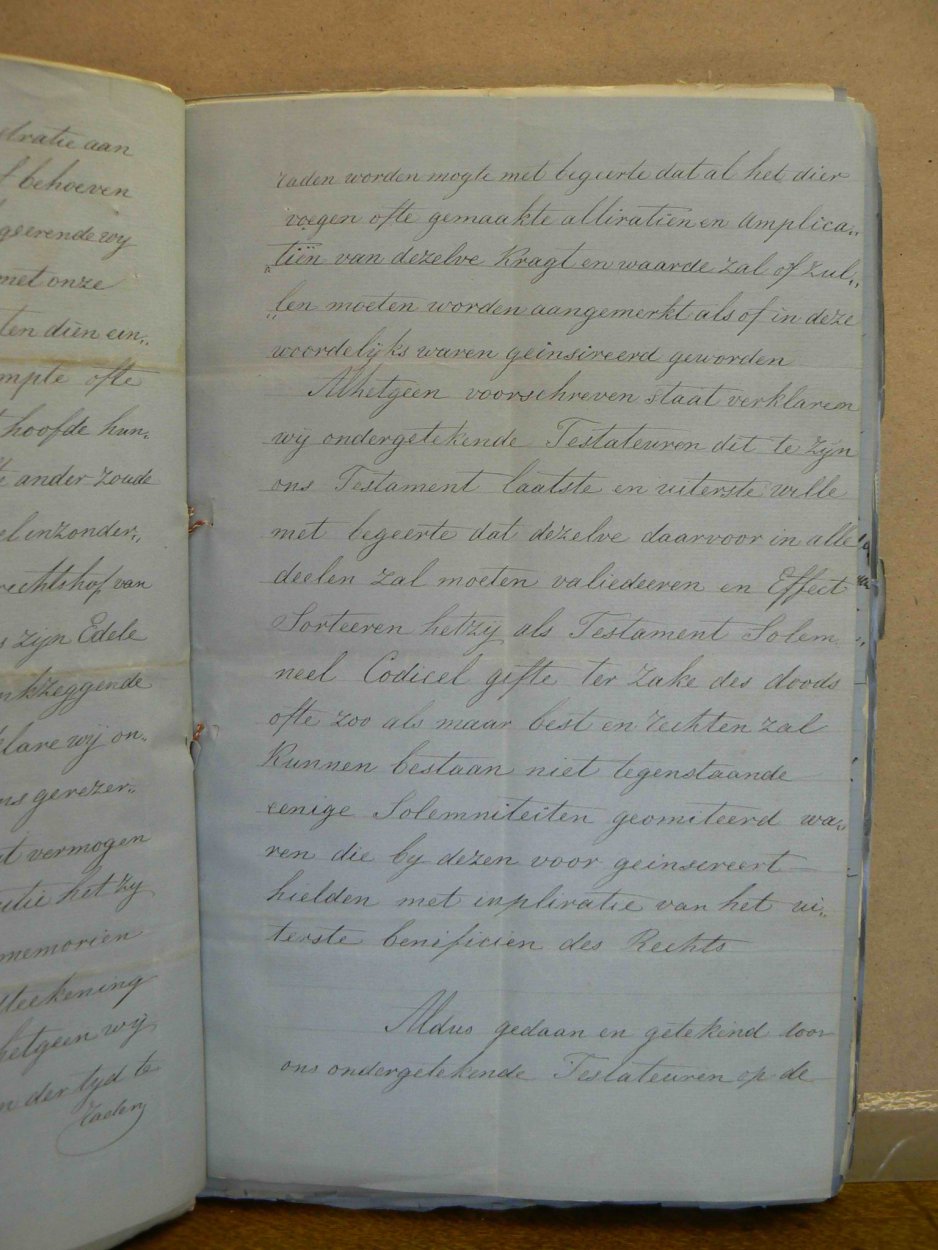 etratie aan
f behoeven
geerende wij
met onze
ten dien ein„
mpte ofte
t hoofde hun„
te ander zoude
el inzonder„
rechtshof van
s zijn Edele
nkzeggende
lare wij on„
ns gerezer„
at vermogen
utie het zij
memorien
lteekening
hetgeen wij
n der tijd te
raden
raden worden mogte met begeerte dat al het dier
voegen ofte gemaakte altiratiën en amplica„
„tiën van dezelve kragt en waarde zal of zul„
„len moeten worden aangemerkt als of in deze
woordelijks waren geinsireerd geworden
Alhetgeen voorschreven staat verklaren
wij ondergetekende Testateuren dit te zijn
ons Testament laatste en uiterste wille
met begeerte dat dezelve daarvoor in alle
deelen zal moeten valiedeeren en Effect
Sorteeren hetzij als Testament Solem
neel Codicel gifte ter zake des doods
ofte zoo als maar best en rechten zal
kunnen bestaan niet tegenstaande
eenige Solemniteiten geomiteerd wa„
ren die by dezen voor geinsereert
hielden met inpliratie van het ui„
terste benificien des Rechts
Aldus gedaan en getekend door
ons ondergetekende Testateuren op de